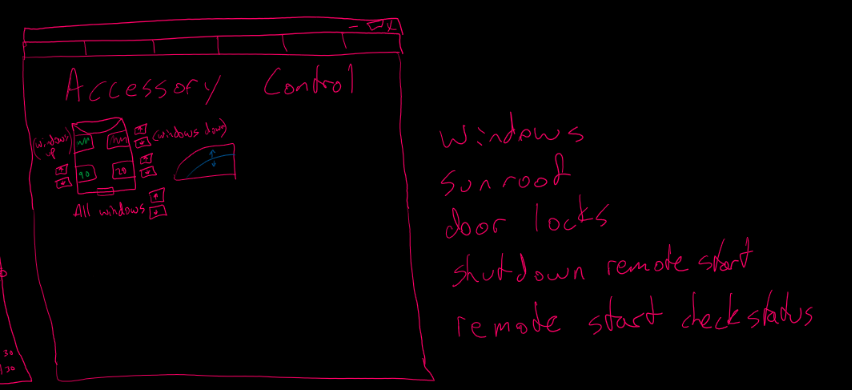 Accessory Control
(windows up
(windows down)
90
20
All windows
windows
sunroof
door locks
shutdown remote start
remote start check status
30